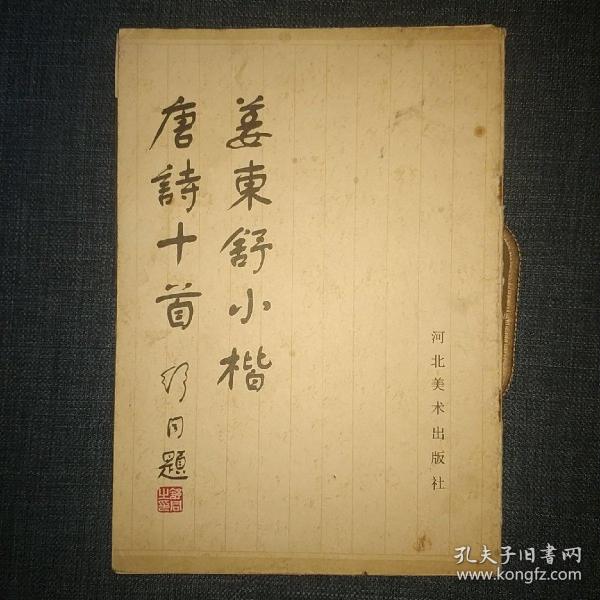 姜東舒小楷
唐詩十首
舒同題
舒同之印
河北美术出版社
孔夫子旧書网
www.kongfz.com